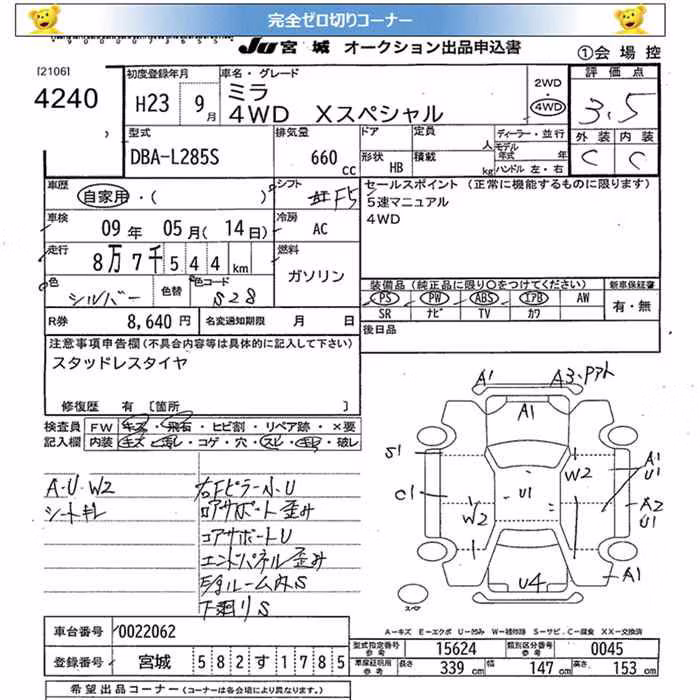 完全ゼロ切りコーナー
JU 宮城 オークション出品申込書
①会場控
[2106]
4240
初度登録年月
H23 9月
車名・グレード
ミラ
4WD Xスペシャル
2WD
・
4WD
評価点
3.5
外装 内装
C C
型式
DBA-L285S
排気量
660 cc
ドア 定員 人
形状 HB 積載 kg
ディーラー・並行
モデル年式 年
ハンドル 左・右
車歴
自家用・( )
シフト
F5
セールスポイント(正常に機能するものに限ります)
5速マニュアル
4WD
車検
09年 05月(14日)
冷房
AC
走行
8万7千544km
燃料
ガソリン
色
シルバー
色替
色コード
S28
装備品(純正品に限り○をつけてください)
PS PW ABS エアB AW
SR ナビ TV カワ
新車保証書
有・無
R券 8,640円
名変通知期限 月 日
後日品
注意事項申告欄(不具合内容等は具体的に記入して下さい)
スタッドレスタイヤ
修復歴 有 [箇所 ]
検査員記入欄
FW キズ・飛石・ヒビ割・リペア跡・×要
内装 キズ・汚れ・コゲ・穴・スレ・キレ・破レ
A・U・W2
シートキレ
右Fピラー小U
ロアサポート歪み
コアサポートU
エンドパネル歪み
下廻りS
A1 A3
A1
S1
W2
A1
U1
C1
U1
W2
A2
U1
U4
A1
スペア
A－キズ E－エクボ U－凹み W－補修跡 S－サビ C－腐食 XX－交換済
車台番号 0022062
登録番号 宮城 582す1785
型式指定番号 参考 15624
類別区分番号 参考 0045
車庫証明用 参考 長さ 339cm 幅 147cm 高さ 153cm
希望出品コーナー(コーナーは各会場により異なります。)